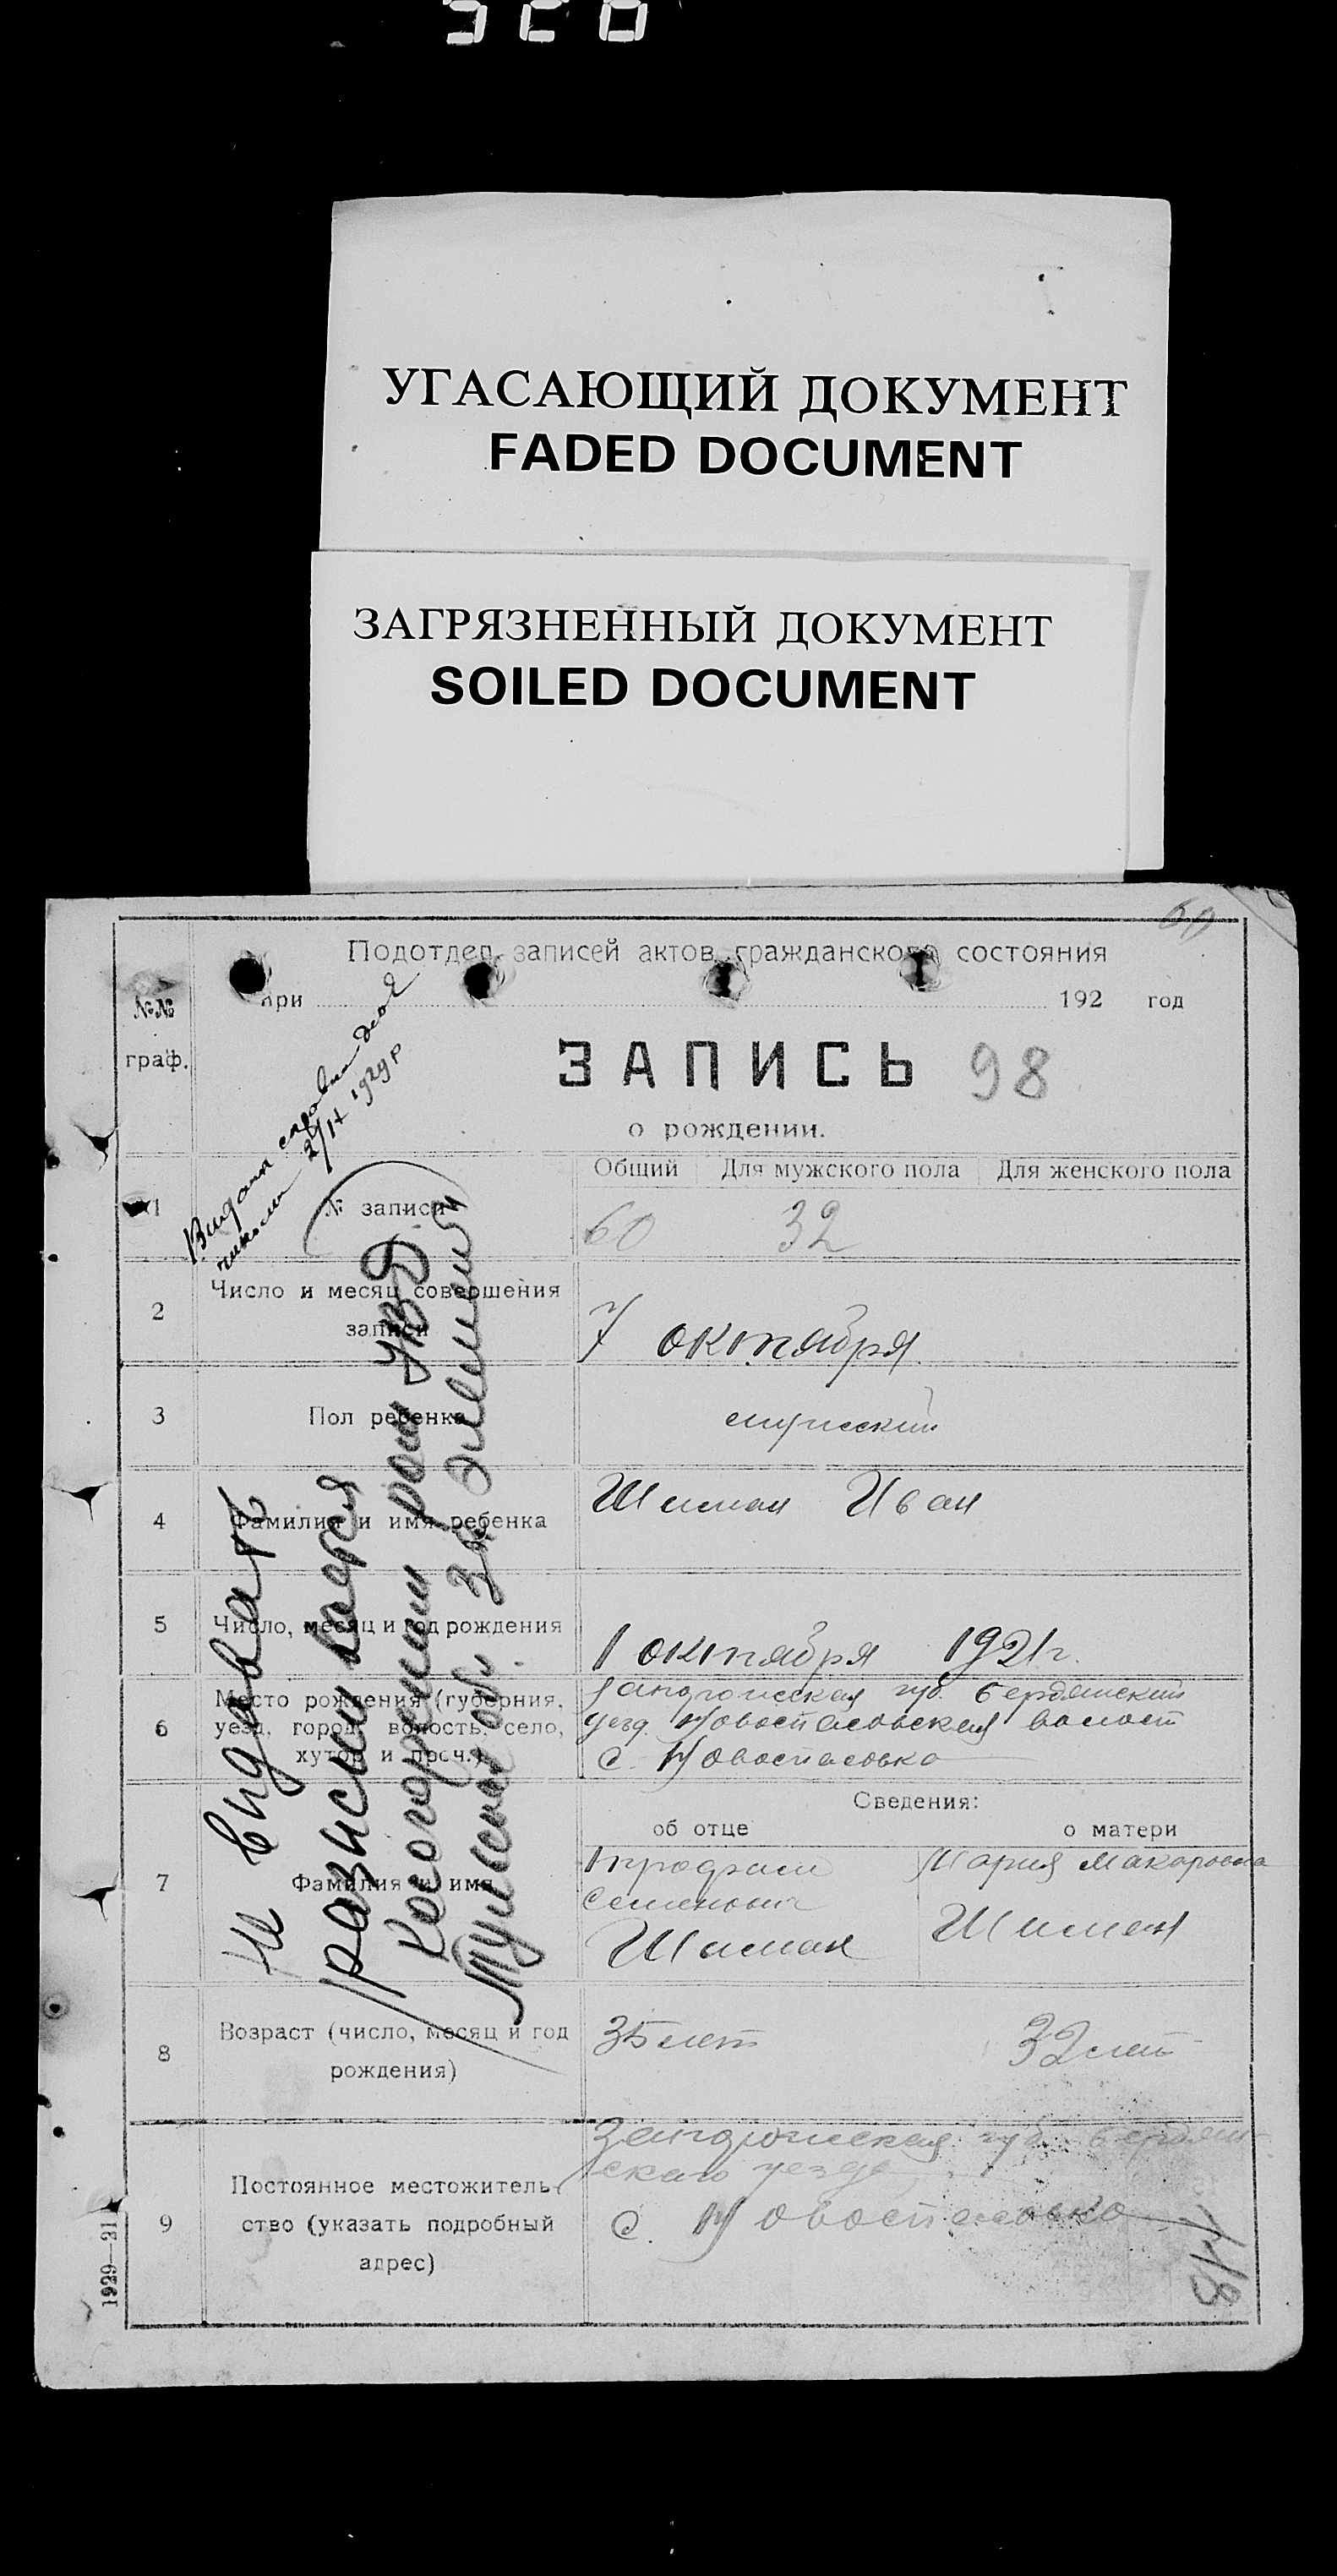 УГАСАЮЩИЙ ДОКУМЕНТ
FADED DOCUMENT
ЗАГРЯЗНЕННЫЙ ДОКУМЕНТ
SOILED DOCUMENT
60
Подотдел записей актов гражданского состояния
при 192 год
№№
граф.
ЗАПИСЬ 98
о рождении.
Общий Для мужского пола Для женского пола
1 № записи 60 32
2 Число и месяц совершения
записи
7 октября
3 Пол ребенка мужской
4 Фамилия и имя ребенка Шиман Иван
5 Число, месяц и год рождения 1 октября 1921 г.
6 Место рождения (губерния,
уезд, город, волость, село,
хутор и проч.)
Запорожская губ. Бердянский
уезд. Новоспасовская волост
с. Новоспасовка
Сведения:
об отце о матери
7 Фамилия и имя
Трофим
Семенович
Шиман
Мария Макаровна
Шиман
8 Возраст (число, месяц и год
рождения)
35 лет 32 лет
9 Постоянное местожитель-
ство (указать подробный
адрес)
Запорожская губ. Бердян-
скаго уезда
с. Новоспасовка
1929—31
Видана справка
2/IX 1929 р
Не видавать
розиск